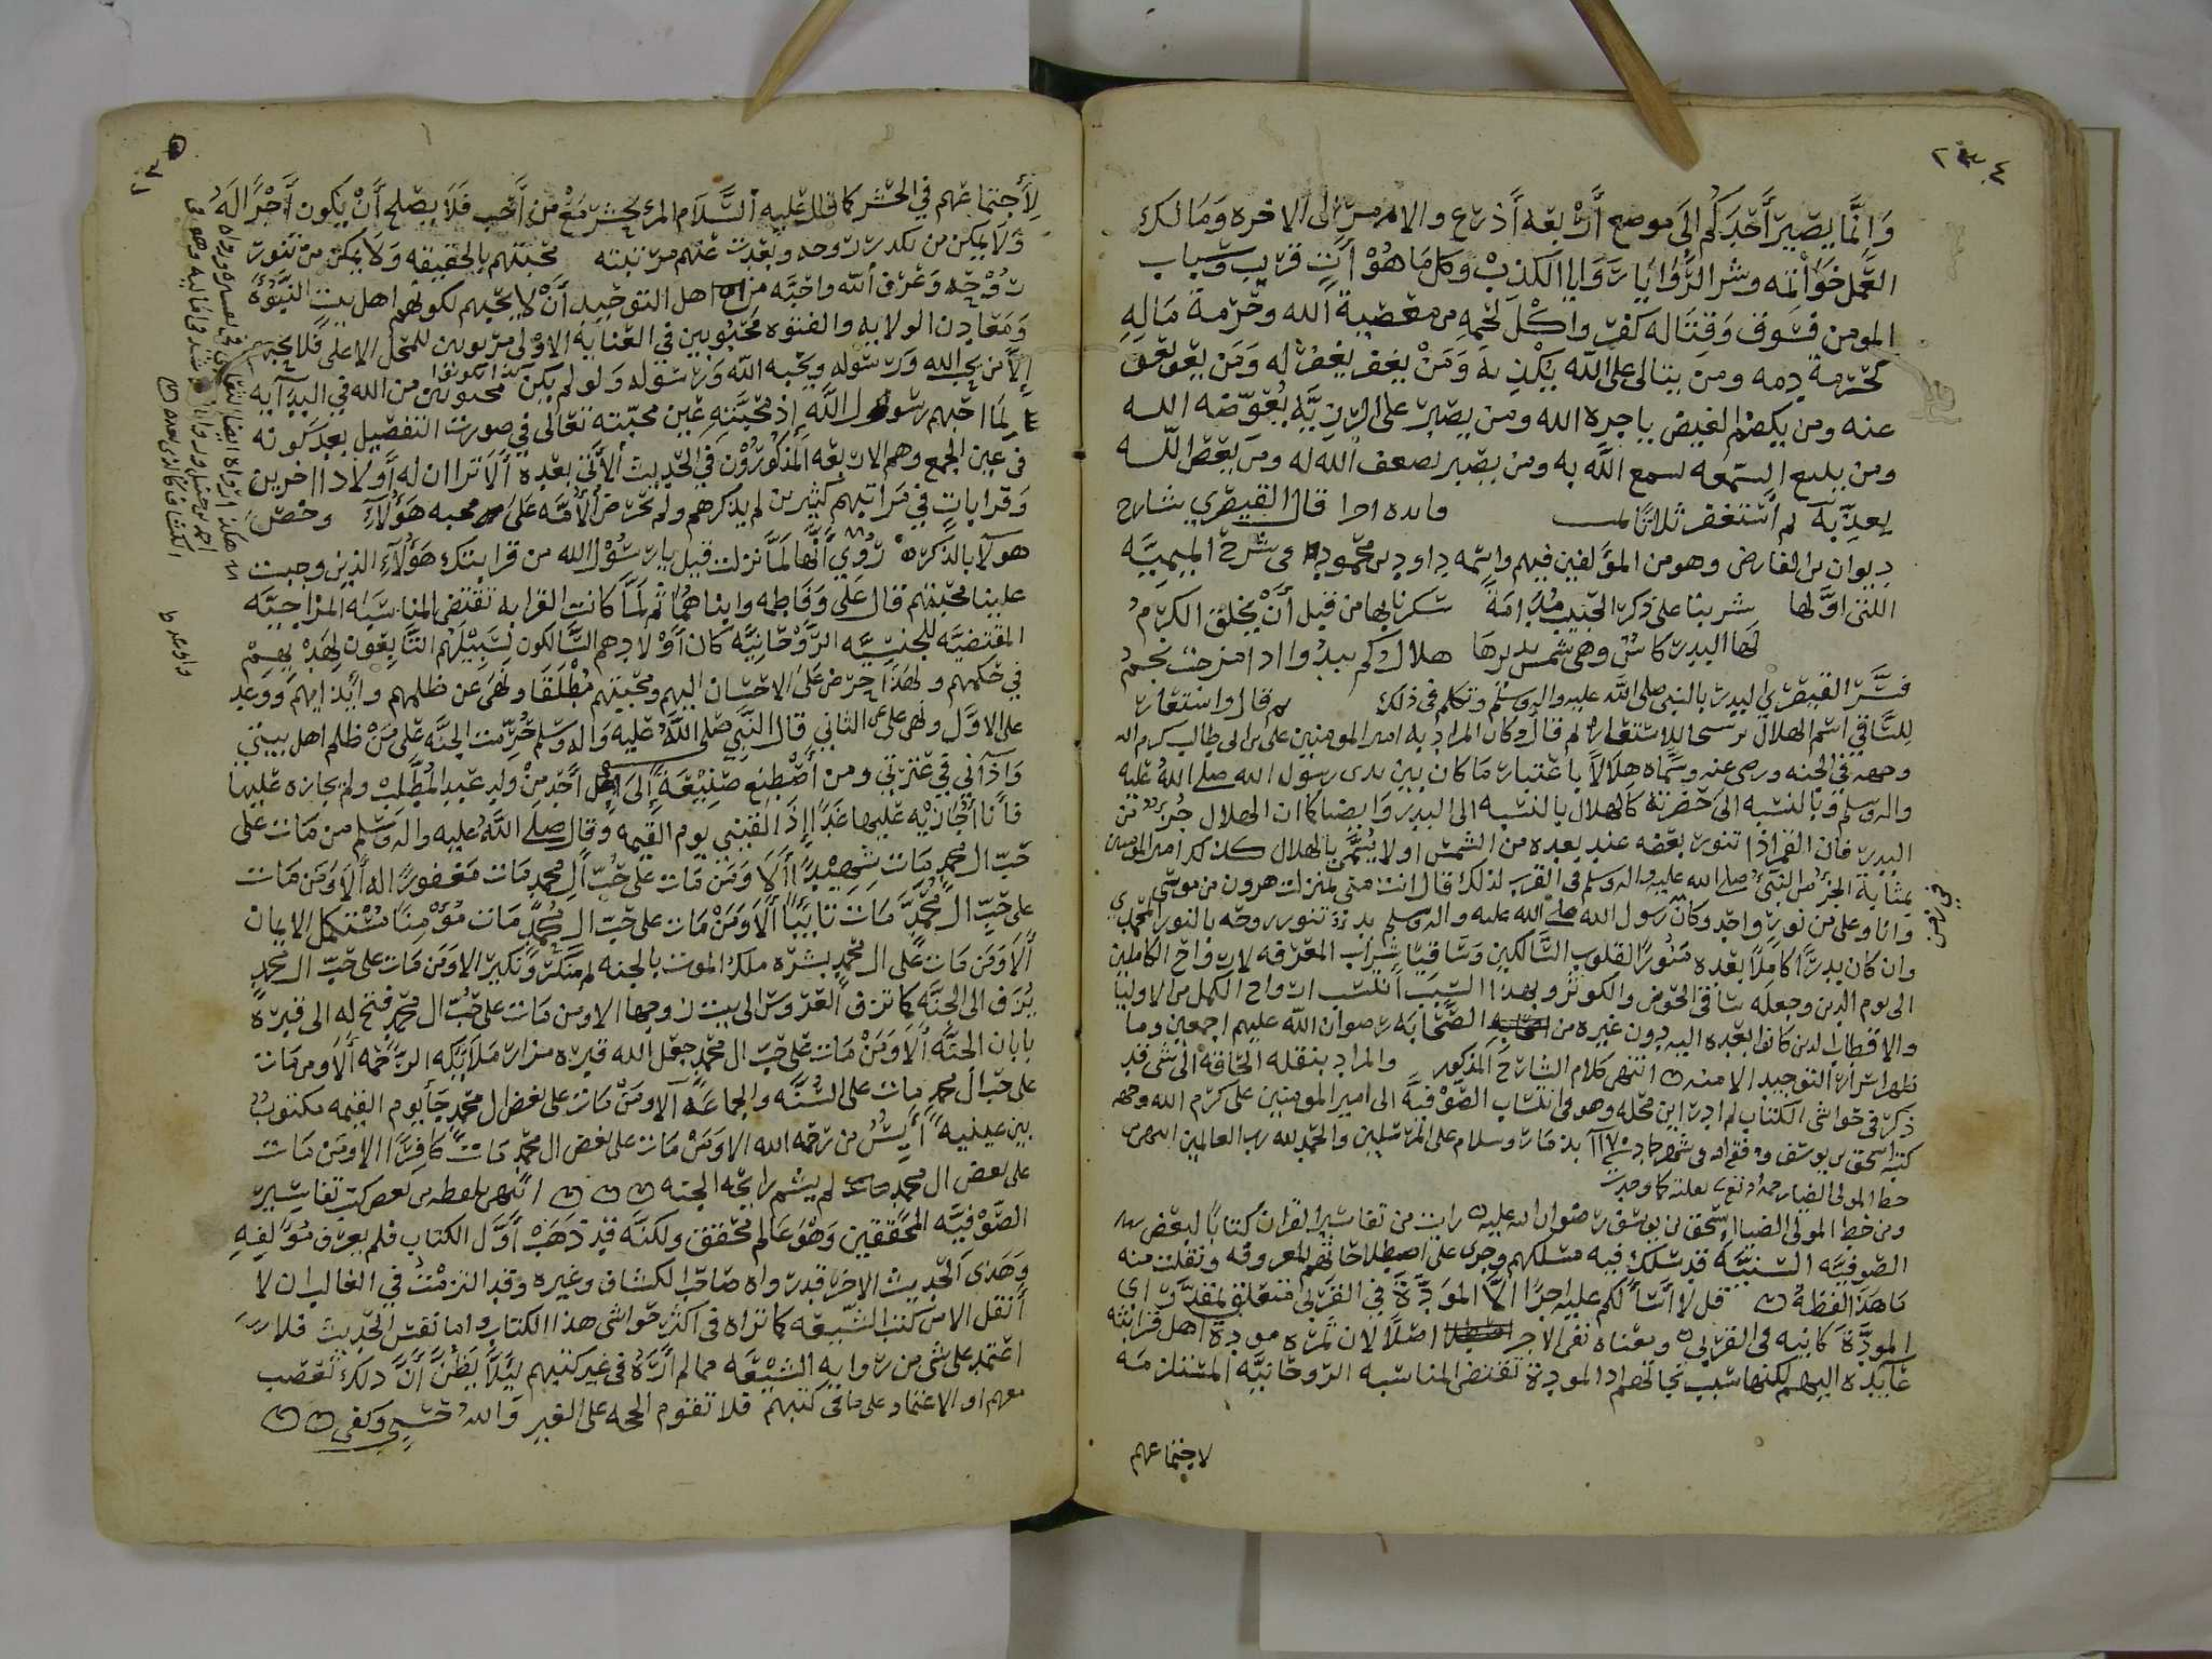 وَاِنَّمَا يَصِيْر أَحَدكُم إلَى موضع أَرْبعه أَذرع والامر إلى الاخره وَمَا لك
العَمل خَوَاتمه وشر الرَّوَايَا رَوَايا الكذب وكل مَا هُوْ أَتٍ قريب وسباب
المومن فسوق وَقتَاله كفر واكْل لحمه من معصية الله وحرمة مَاله
كحرمة دمه ومن يتالى على الله يكذبه وَمَنْ يغفر يغفر له وَمَن يعف يعف
عنه ومن يكضم الغيض ياجره الله ومن يصبر على الرزيَّه يُعوّضه الله
ومن يتبع السمعه يسمع اللَّه به ومن يصبر يضعف الله له ومن يعص الله
يعذّبه ثم أستغفر ثلاثا قال القيصري شارح
ديوان بن الفارض وهو من المؤلفين فيهم واسمه داود بن محمود في شرح الميميَّه
اللتي اوّلها شربنا على ذكر الحبيب مُدَامَةً سكرنا بها من قبل أَنْ يخلق الكرمُ
لها البدر كاسٌ وهي شمس يديرها هلال وكم يبدُوا اذا مزجت نجمُ
فسَّر القيصري البدر بالنبي صلى الله عليه واله وسلم وتكلم في ذلك ثم قال واستعار
للساقي اسم الهلال ترشحا للاستعاره ثم قال وكان المراد به امير المومنين على بن ابى طالب كرم الله
وجهه في الجنه ورضى عنه وسَمَّاه هلالاً باعتبار مَا كان بين يدى رسول الله صلى الله عليه
واله وسلم وبالنسبه الى حضرته كالهلال بالنسبه الى البدر وَايضا كما ان الهلال جُزءٌ من
البدر فان القمر اذا تنور بعضه عند بعده من الشمس اولا يُسَمَّى بالهلال كذلك امير المومنين
بمثابة الجزء من النبيّ صلى الله عليه واله وسلم فى القرب لذلك قال انت منى بمنزلت هرون من موسى
وانا وعلى من نور واحد وكان رسول الله صلى الله عليه واله وسلم بدر تنور روحه بالنور المحمدي
وان كان بدرًا كاملاً بعده مُنورًا لقلوب السَّالكين وسَاقيًا شراب المعرفه لارواح الكاملين
الى يوم الدين وجعله ساقى الحوض والكوثر وبهذا السبب انتسب ارواح الكمل من الاوليا
والاقطاب الذين كانوا بعده اليه دون غيره من الصَّحَابَه رضوان الله عليهم اجمعين وما
ظهر اسرار التوحيد الا منه انتهى كلام الشارح المذكور والمراد بنقله الحَاقه الى شى قد
ذكر فى حواشى الكتاب لم ادر اين محله وهو في انتساب الصُّوْفيَّه الى امير المومنين على كرم الله وجهه
كتبه اسحق بن يوسف
ومن خط المولى الضيا اسحق بن يوسف رضوان الله عليه رايت من تفاسير القران كتابًا لبعض
الصوفيّه السنيَّه قد سلك فيه مسلكهم وجرى على اصطلاحاتهم المعروفه ونقلت منه
مَا هَذَا لفظهُ قل لا أسألكم عليه اجرًا الاَّ المَوَدَّةَ في القربى متعلق بمقدَّر اى
المودَّة كاينه فى القربى ومعناه نفى الاجر اصلًا لان ثمره مودة اهل قرابته
عَايده اليهم لكنها سبب نجاتهم اذ المودة تقتضى المناسبه الروحَانيَّه المستلزمَه
لاجتماعهم
لِأَجتماعهم في الحشر كما قال عليه السَّلام المرء يحشر مَعْ من أَحب فلاَ يصلح أَنْ يكون أَجْرًا لَهُ
وَلاَ يمكن من تكدرت روحه وبعدت عنهم مرتبته محبَتهم بالحقيقه وَلاَ يمكن من تنورت
روْحه وَعَرف الله واحبَّه من اهل التوحيد أَنْ لا يحبهم لكونهم اهل بيت النبوة
وَمَعَادن الولايه والفتوه محبوبين في العنايه الاولى مربوبين للمحل الاعلى فَلا يحبهم
إلاَّ من يحب الله وَرسُوله ويحبه الله وَرسُوله وَلو لم يكونوا محبوبين من الله في البدايه
لَمَا احبهم رسُول اللَّه إِذ محبَّته عَين محبّته تعَالَى في صورت التفصيل بعد كونه
في عَين الجمع وهم الاربعه المذكُورون في الحَديث الأتي بعده أَلاَ ترا ان له أَولادًا اخرين
وَقرابات في مَراتبهم كثيرين لم يذكرهم ولم يحرض الأُمَّه عَلى محبه هؤلاَءِ وخصَّ
هولاَ بالذكر رُوِي أَنَّها لَمَّا نزلت قيل يا رسُوْل الله من قرابتك هَؤلاَءِ الذين وجبت
علينا محبّتهم قال عَلي وَفَاطمه وابنَاهُمَا ثم لَمَّا كَانت القرابه تقتضى المناسَبَه المزاجيَّه
المقتضيَّه للجنسيَّه الرَّوْحَانِيَّه كان أَوْلادهم السَّالكون لسَبِيْلهم التَّابعون لهَدْيهم
في حكمهم ولهذا حرَض عَلى الاحسَان اليهم ومحبتهم مُطْلَقَا وَنهى عن ظلمهم وايذايهم وَوعد
على الاوَّل ونهى عن الثاني قال النَّبي صَلى اللَّهُ عَليه وَاله وسَلم حُرِّمت الجنَّه عَلَى مَنْ ظلم اهل بيتي
وَآذاني في عترتي ومن أَصْطنع صَنيْعَةً إِلى أَحَدٍ مِنْ ولد عَبد المُطَّلِب ولم يجازه عَليها
فأَنا أُجَازيْه عَليها غَدًا إذَا لقيني يوم القيمه وَقال صلى اللَّهُ عليه واله وسَلم من مَات عَلى
حُبّ ال محمد مَات شَهِيْدًا أَلاَ وَمَن مَات عَلى حُبّ أَل محمد مَات مَغفورًا له أَلاَ وَمَن مَات
على حُبّ ال مُحَمَّد مَات تَايبًا أَلاَ وَمَنْ مَات على حُبّ ال مُحمَّد مَات مُؤْمنًا مُسْتكمل الايمان
أَلاَ وَمَن مَات عَلى ال محمد بشره ملك الموت بالجنه ثم منكر وَنكير الا وَمَن مَات على حُبّ ال محمد
يُزَف الى الجنَّه كما تزف العَروسُ الى بيت زوجها الا ومن مَات على حُبّ ال محمّد فتح له الى قبره
بابان الجنَّه أَلاَ وَمَنْ مَات عَلى حُبّ ال محمّد جعَل الله قبره مزار مَلاَيكه الرَّحمه أَلاَ ومن مَات
على حُبّ أل محمد مات على السُّنَّه والجماعَه ألا ومَنْ مَات على بُغض ال محمّد جَأ يوم القيمه مكتوبٌ
بين عينيه أَيِسٌ من رحمه الله الا وَمَنْ مَات على بغض ال محمّد مَات كَافرًا الا ومَنْ مَات
على بعض ال محمد لم يشم رايحَه الجنه انتهى بلفظه من بعض كتب تفاسير
الصّوْفيَّه المحققين وَهُو عَالم محقق ولكنَّه قد ذَهَبْ أَوَّل الكتاب فلم يعرف مُؤَلفِهِ
وَهَذى الحَديث الاخر قد رواه صَاحب الكشاف وغيره وقد التزمْتُ في الغالب ان لا
أَنقل الا من كتب الشّيعه كما تراه فى أكثر حَواشى هذا الكتاب واما نفس الحَديث فلا
اعتمد على شى من روايه الشيْعَه مما لم أَرَهُ فى غير كتبهم ليَلاَّ يَظُنَّ أَنَّ ذلك تعَصب
معهم او الاعتماد على مَا فى كتبهم فلا تقوم الحجه على الغير وَاللهُ حَسبي وكفى